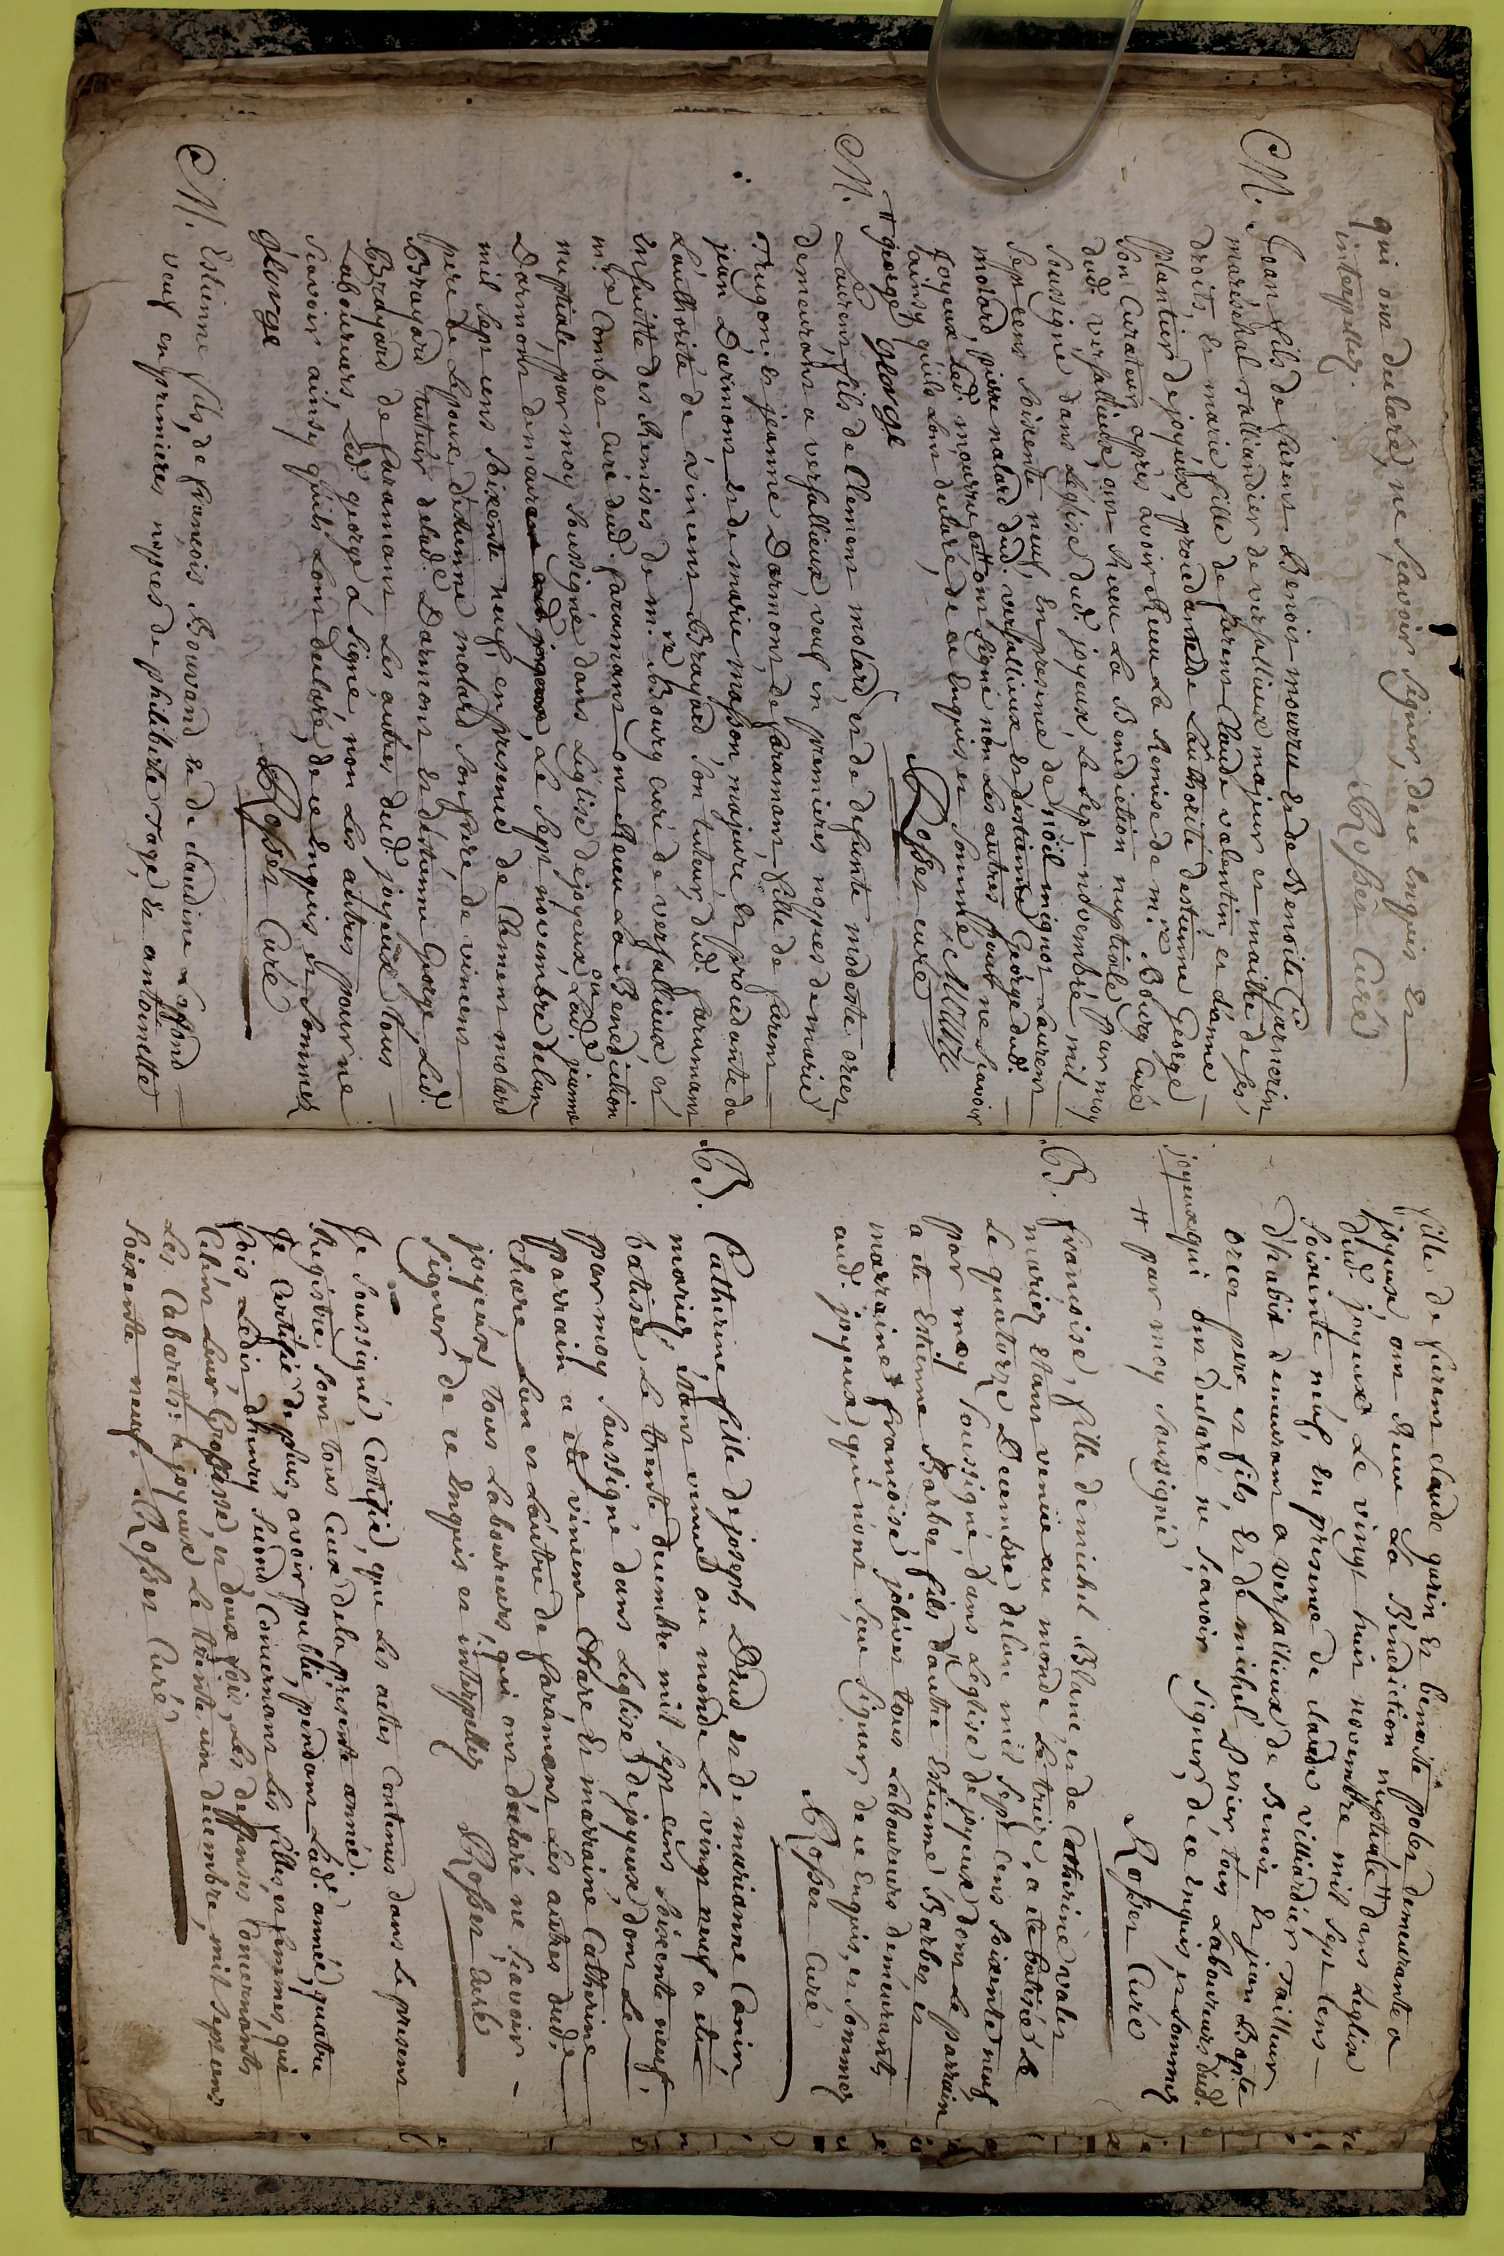 qui ont declaré, ne scavoir signer, de ce enquis et
interpellez. Rosset Curé
M. Jean fils de furent Benoit mourru et de Benoite Garnerin
maréchal taillandier de versallieux majeur et maitre de ses
droits, et marie fille de furent Claude valentin, et d'anne
plantier de joyeux, procedante de L'authorité d'estienne George
son Curateur, après avoir Reçu La Remise de m.re Bourg Curé
dud. versallieux, ont Reçu La Benediction nuptiale par moy
soussigné dans L'eglise dud. joyeux, Le Sept novembre mil
Sept cent soixente neuf, en presence de noël mignot Laurent
molard, pierre nalard dud. versallieux et d'estienne George dud.
joyeux Led. mourru # ont signé non Les autres pour ne scavoir
ainsy qu'ils L'ont declaré de ce Enquis et sommé,
# george George Rosset curé
M. Laurent, fils de Clement molard, et de defunte modeste orier
demeurant a versallieux, veuf en premieres nopces de marie
Trugon: et jeanne Darmont, de faramant, fille de furent
jean Darmont et de marie masson majeure et procedante de
L'authorité de vincent Brayard, son tuteur, dud. faramant
ensuitte des Remises de m.re Bourg curé de versallieux, et
m.re Combet curé dud. faramant ont Reçu La Benediction
nuptiale, par moy soussigné dans L'eglise de joyeux, ou Lad. jeanne
Darmont demeure Le Sept novembre de L'an
mil Sept cent soixente neuf, en presence de Clement molard
pere de L'epoux, d'etienne molard son frere, de vincent
Brayard tuteur de Lad. Darmont et d'etienne George, Led.
Brayard de faramant Les autres dud. joyeux tous
Laboureurs, Led. george a signé, non Les autres pour ne
scavoir ainsy qu'ils L'ont declaré, de ce Enquis et sommez
George Rosset Curé
M. Estienne fils, de françois Bouvand et de claudine Laffond
veuf en premieres nopces de philiberte Tagé, et antoinette
fille de furent claude gurin et benoite polet demeurante a
joyeux, ont Reçu La Benediction nuptiale # dans L'eglise
dud. joyeux, Le vingt huit novembre mil Sept cens
soixente neuf, en presence de claude villiardier Tailleur
d'habit demeurant a versallieux de Benoit et jean Bapte
orier pere et fils, et de michel Perier, tous Laboureurs dud.
joyeux qui ont declaré ne scavoir signer, de ce enquis, et sommez
# par moy soussigné, Rosset Curé
B. françoise, fille de michel Blanc, et de Catherine valet
mariez etant venüe au monde Le treize, a eté batisée Le
Le quatorze Decembre de L'an mil Sept cens soixente neuf
par moy soussigné, dans L'eglise de joyeux dont Le parrain
a eté Estienne Barbet fils d'autre Estienne Barbet et
marraine françoise jolivet tous Laboureurs demeurants
aud. joyeux, qui n'ont sçu signer, de ce Enquis, et sommez
Rosset Curé
B. Catherine fille de joseph Brud et de marianne Conin
mariez, etant venue au monde Le vingt neuf a eté
batisée Le trente decembre mil Sept cens soixente neuf,
par moy soussigné dans L'eglise de joyeux dont Le
parrain a eté vincent Chare et marraine Catherine
Chare L'un et L'autre de faramant Les autres dud.
joyeux tous Laboureurs, qui ont declaré ne scavoir
signer de ce Enquis et interpellez Rosset curé
Je soussigné, Certifie, que Les actes contenus dans Le present
Registre sont tous Ceux de la presente année.
Je Certifie de plus, avoir publié pendant Lad. année, quatre
fois L'edit d'henry Second Concernant Les filles, et femmes, qui
Celent Leur Grossesse, et deux fois, Les deffenses Concernants
Les Cabarets: a joyeux Le trente un decembre, mil sept cens
soixente neuf. Rosset Curé